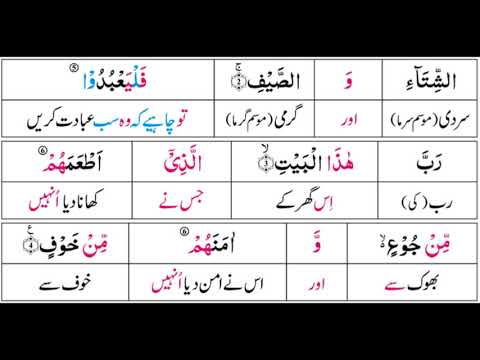 الشِّتَآءِ وَ الصَّيْفِ ۚ﴿۲﴾ فَلْيَعْبُدُوْا ۵
سردی (موسم سرما) اور گرمی (موسم گرما) تو چاہیے کہ وہ سب عبادت کریں
رَبَّ هٰذَا الْبَيْتِ ۙ﴿۳﴾ الَّذِىْۤ اَطْعَمَهُمْ ۶
رب (کی) اِس گھر کے جس نے کھانا دیا اُنہیں
مِّنْ جُوْعٍ ۙ وَّ اٰمَنَهُمْ ۶ مِّنْ خَوْفٍ ﴿۴﴾
بھوک سے اور اس نے امن دیا اُنہیں خوف سے